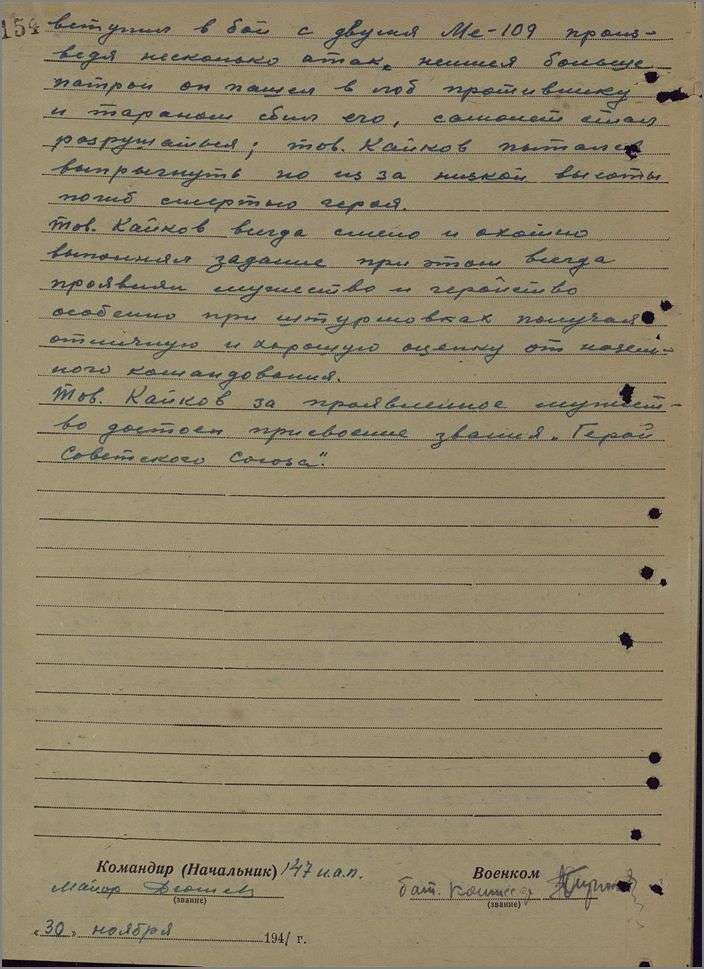 154 вступил в бой с двумя Ме-109 произ-
ведя несколько атак, неимея больше
патрон он пашел в лоб противнику
и тараном сбил его, самолет стал
разрушаться; тов. Кайков пытался
выпрыгнуть но из за низкой высоты
погиб смертью героя.
Тов. Кайков всегда смело и охотно
выполнял задание при этом всегда
проявлял мужество и геройство
особенно при штурмовках получая
отличную и хорошую оценку от назем-
ного командования.
Тов. Кайков за проявленное мужест-
во достоен присвоение звания „Герой
Советского Союза".
Командир (Начальник) 147 и.а.п.
Военком
Майор
бат. Комиссар
(звание)
(звание)
„30" ноября 1941 г.